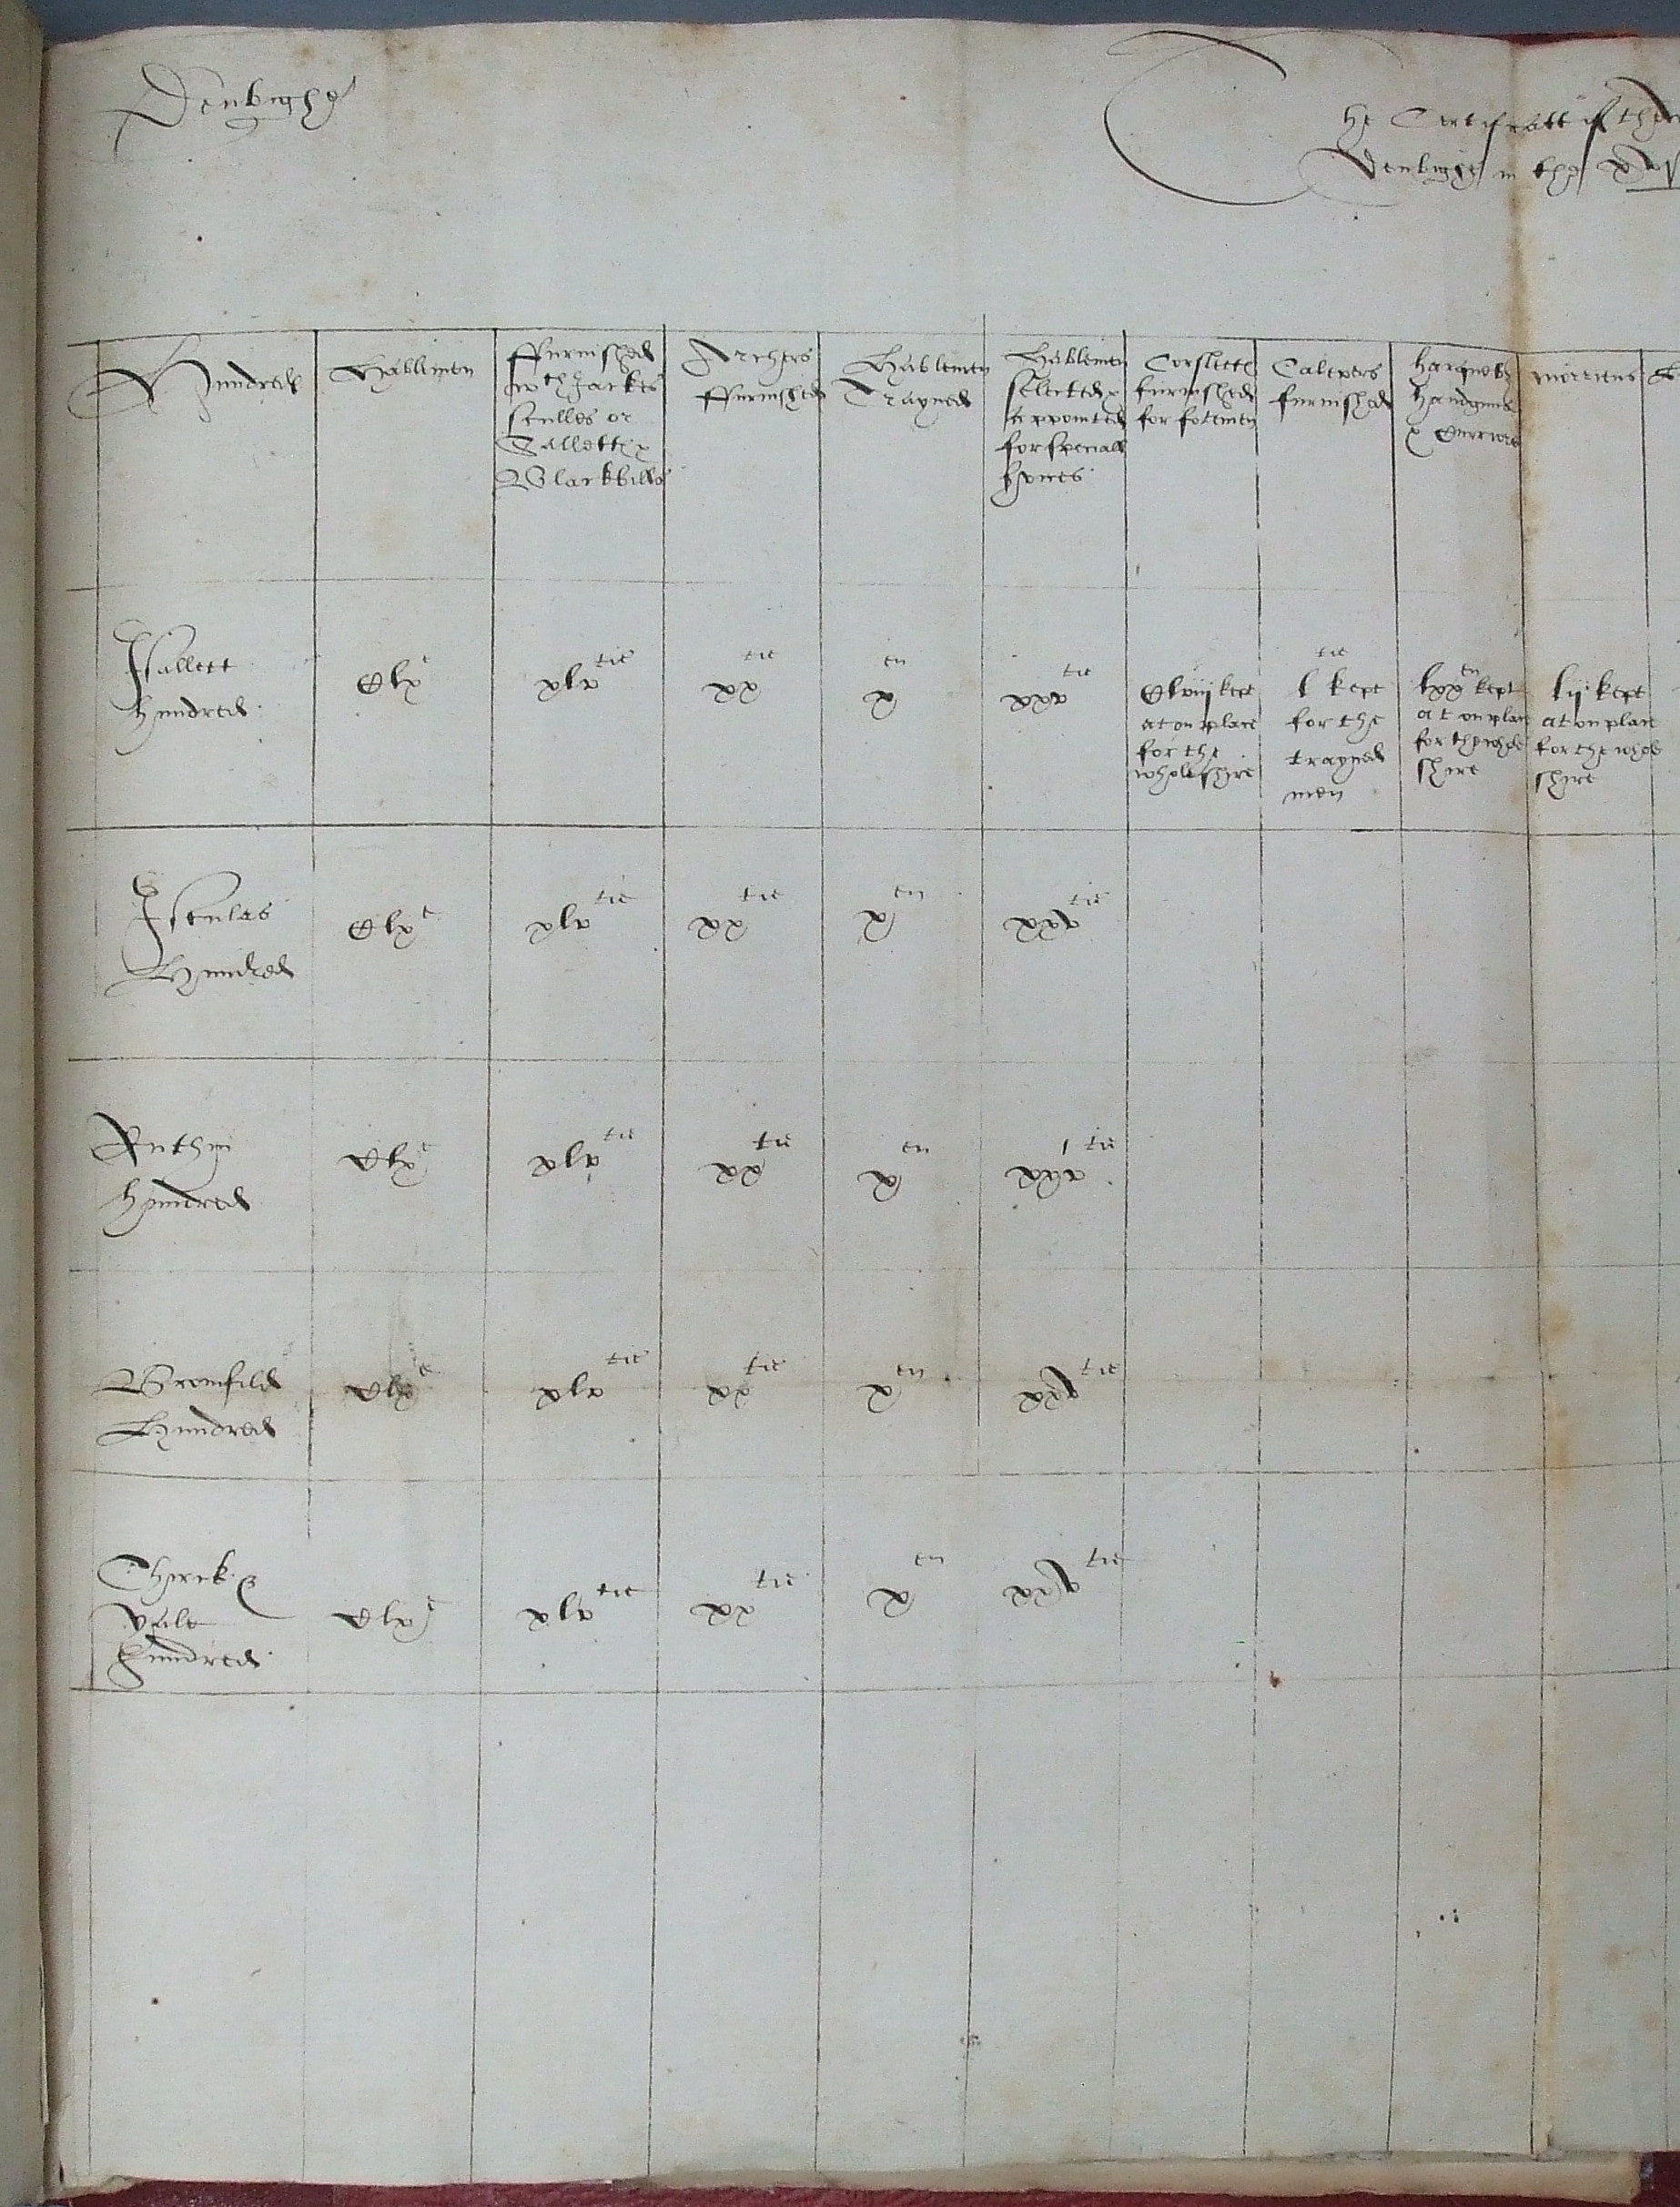 Denbighe
he Certificatt of the
Denbighe in the
Hundreds
Hablemen
Furnished
wth Jackes
sculles or
Salletts &
Blackbills
Archers
Furnished
Hablemen
Trayned
Hablemen
selected &
appointed
for speciall
Corsletts
furnished
for fotemen
Calivers
furnished
harquebz
handguns
& Curriers
morriens
Isallett
hundred
Clxᵉ
xlvtie
xxtie
xen
xxxvtie
Clviij kept
at on place
for the
whole shire
ltie kept
for the
trayned
men
kept
at on place
for the whole
shire
lij kept
at on place
for the whole
shire
Iscnlas
Hundred
Clxᵉ
xlvtie
xxtie
xen
xxxvtie
Ruthyn
hundred
Clxᵉ
xlvtie
xxtie
xen
xxxvtie
Bromfild
Hundred
Clxᵉ
xlvtie
xxtie
xen
xxxvtie
Chirck &
Yale
hundred
Clxᵉ
xlvtie
xxtie
xen
xxxvtie